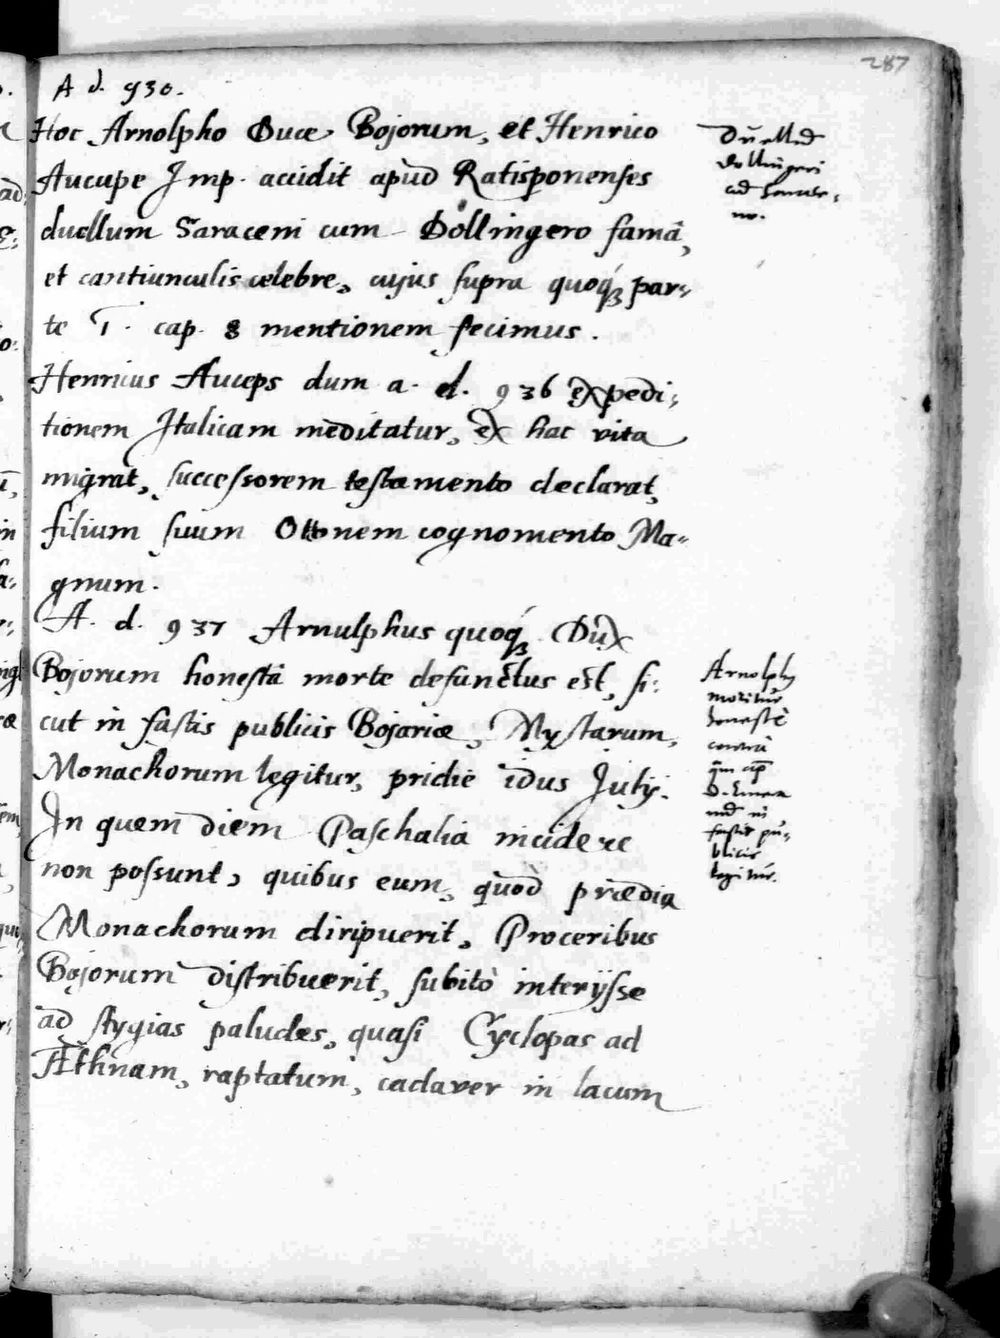 287
A d. 930.
Hoc Arnolpho Duce Bojorum, et Henrico
Aucupe Imp. accidit apud Ratisponenses
duellum Saraceni cum Döllingero famâ,
et cantiunculis celebre, cujus supra quoqꝫ par-
te 1. cap. 8 mentionem fecimus.
Henricus Auceps dum a. d. 936 expedi-
tionem Italicam meditatur, ex hac vita
migrat, successorem testamento declarat,
filium suum Ottonem cognomento Ma-
gnum.
A. d. 937 Arnulphus quoqꝫ Dux
Bojorum honestâ morte defunctus est, si-
cut in fastis publicis Bojariæ, Mystarum,
Monachorum legitur, pridie idus Julij.
In quem diem Paschalia incidere
non possunt, quibus eum, quod prædia
Monachorum diripuerit, Proceribus
Bojorum distribuerit, subitò interijsse
ad stygias paludes, quasi Cyclopas ad
Æthnam, raptatum, cadaver in lacum
Duellum
Dollingeri
Arnolphus
moritur
honestè
contra
S. Emera
in
fastis pu-
blicis
legitur.